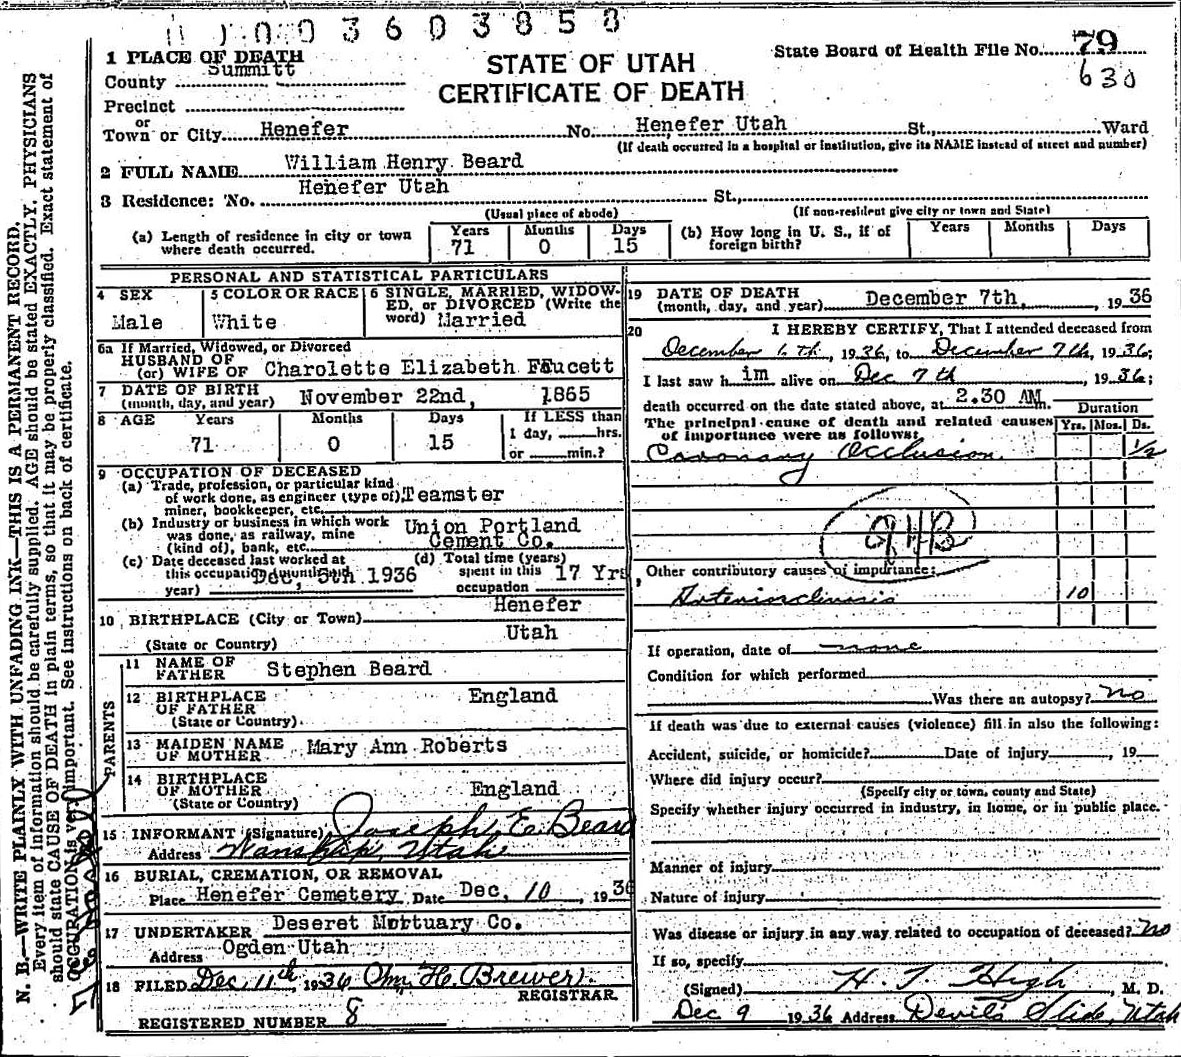 003603858
1 PLACE OF DEATH
County Summitt
Precinct
or
Town or City Henefer No. Henefer Utah St., Ward
(If death occurred in a hospital or institution, give its NAME instead of street and number)
STATE OF UTAH
CERTIFICATE OF DEATH
State Board of Health File No. 79
630
2 FULL NAME William Henry Beard
3 Residence: No. Henefer Utah St.,
(Usual place of abode) (If non-resident give city or town and State)
(a) Length of residence in city or town where death occurred. Years 71 Months 0 Days 15
(b) How long in U. S., if of foreign birth? Years Months Days
PERSONAL AND STATISTICAL PARTICULARS
4 SEX Male
5 COLOR OR RACE White
6 SINGLE, MARRIED, WIDOWED, or DIVORCED (Write the word) Married
6a If Married, Widowed, or Divorced
HUSBAND OF
(or) WIFE OF Charolette Elizabeth Faucett
7 DATE OF BIRTH
(month, day, and year) November 22nd, 1865
8 AGE Years 71 Months 0 Days 15 If LESS than 1 day, hrs. or min.?
9 OCCUPATION OF DECEASED
(a) Trade, profession, or particular kind of work done, as engineer (type of), miner, bookkeeper, etc. Teamster
(b) Industry or business in which work was done, as railway, mine (kind of), bank, etc. Union Portland Cement Co.
(c) Date deceased last worked at this occupation (month and year) Dec, 5th 1936
(d) Total time (years) spent in this occupation 17 Yrs
10 BIRTHPLACE (City or Town) Henefer
(State or Country) Utah
PARENTS
11 NAME OF FATHER Stephen Beard
12 BIRTHPLACE OF FATHER England
(State or Country)
13 MAIDEN NAME OF MOTHER Mary Ann Roberts
14 BIRTHPLACE OF MOTHER England
(State or Country)
15 INFORMANT (Signature) Joseph E. Beard
Address Wanship, Utah
16 BURIAL, CREMATION, OR REMOVAL
Place Henefer Cemetery Date Dec, 10, 1936
17 UNDERTAKER Deseret Mortuary Co.
Address Ogden Utah
18 FILED Dec, 11th, 1936 Wm. H. Brewer.
REGISTRAR
REGISTERED NUMBER 8
19 DATE OF DEATH
(month, day, and year) December 7th, 1936
20 I HEREBY CERTIFY, That I attended deceased from
December 6th, 1936, to December 7th, 1936;
I last saw him alive on Dec 7th, 1936;
death occurred on the date stated above, at 2.30 AM m.
The principal cause of death and related causes of importance were as follows: Duration Yrs. Mos. Ds.
Coronary Occlusion 1/2
Other contributory causes of importance:
Arteriosclerosis 10
If operation, date of none
Condition for which performed
Was there an autopsy? no
If death was due to external causes (violence) fill in also the following:
Accident, suicide, or homicide? Date of injury, 19
Where did injury occur?
(Specify city or town, county and State)
Specify whether injury occurred in industry, in home, or in public place.
Manner of injury
Nature of injury
Was disease or injury in any way related to occupation of deceased? no
If so, specify
(Signed) H. T. High, M. D.
Dec 9 1936 Address Devil's Slide, Utah
N. B.—WRITE PLAINLY WITH UNFADING INK—THIS IS A PERMANENT RECORD.
Every item of information should be carefully supplied. AGE should be stated EXACTLY. PHYSICIANS
should state CAUSE OF DEATH in plain terms, so that it may be properly classified. Exact statement of
OCCUPATION is very important. See instructions on back of certificate.